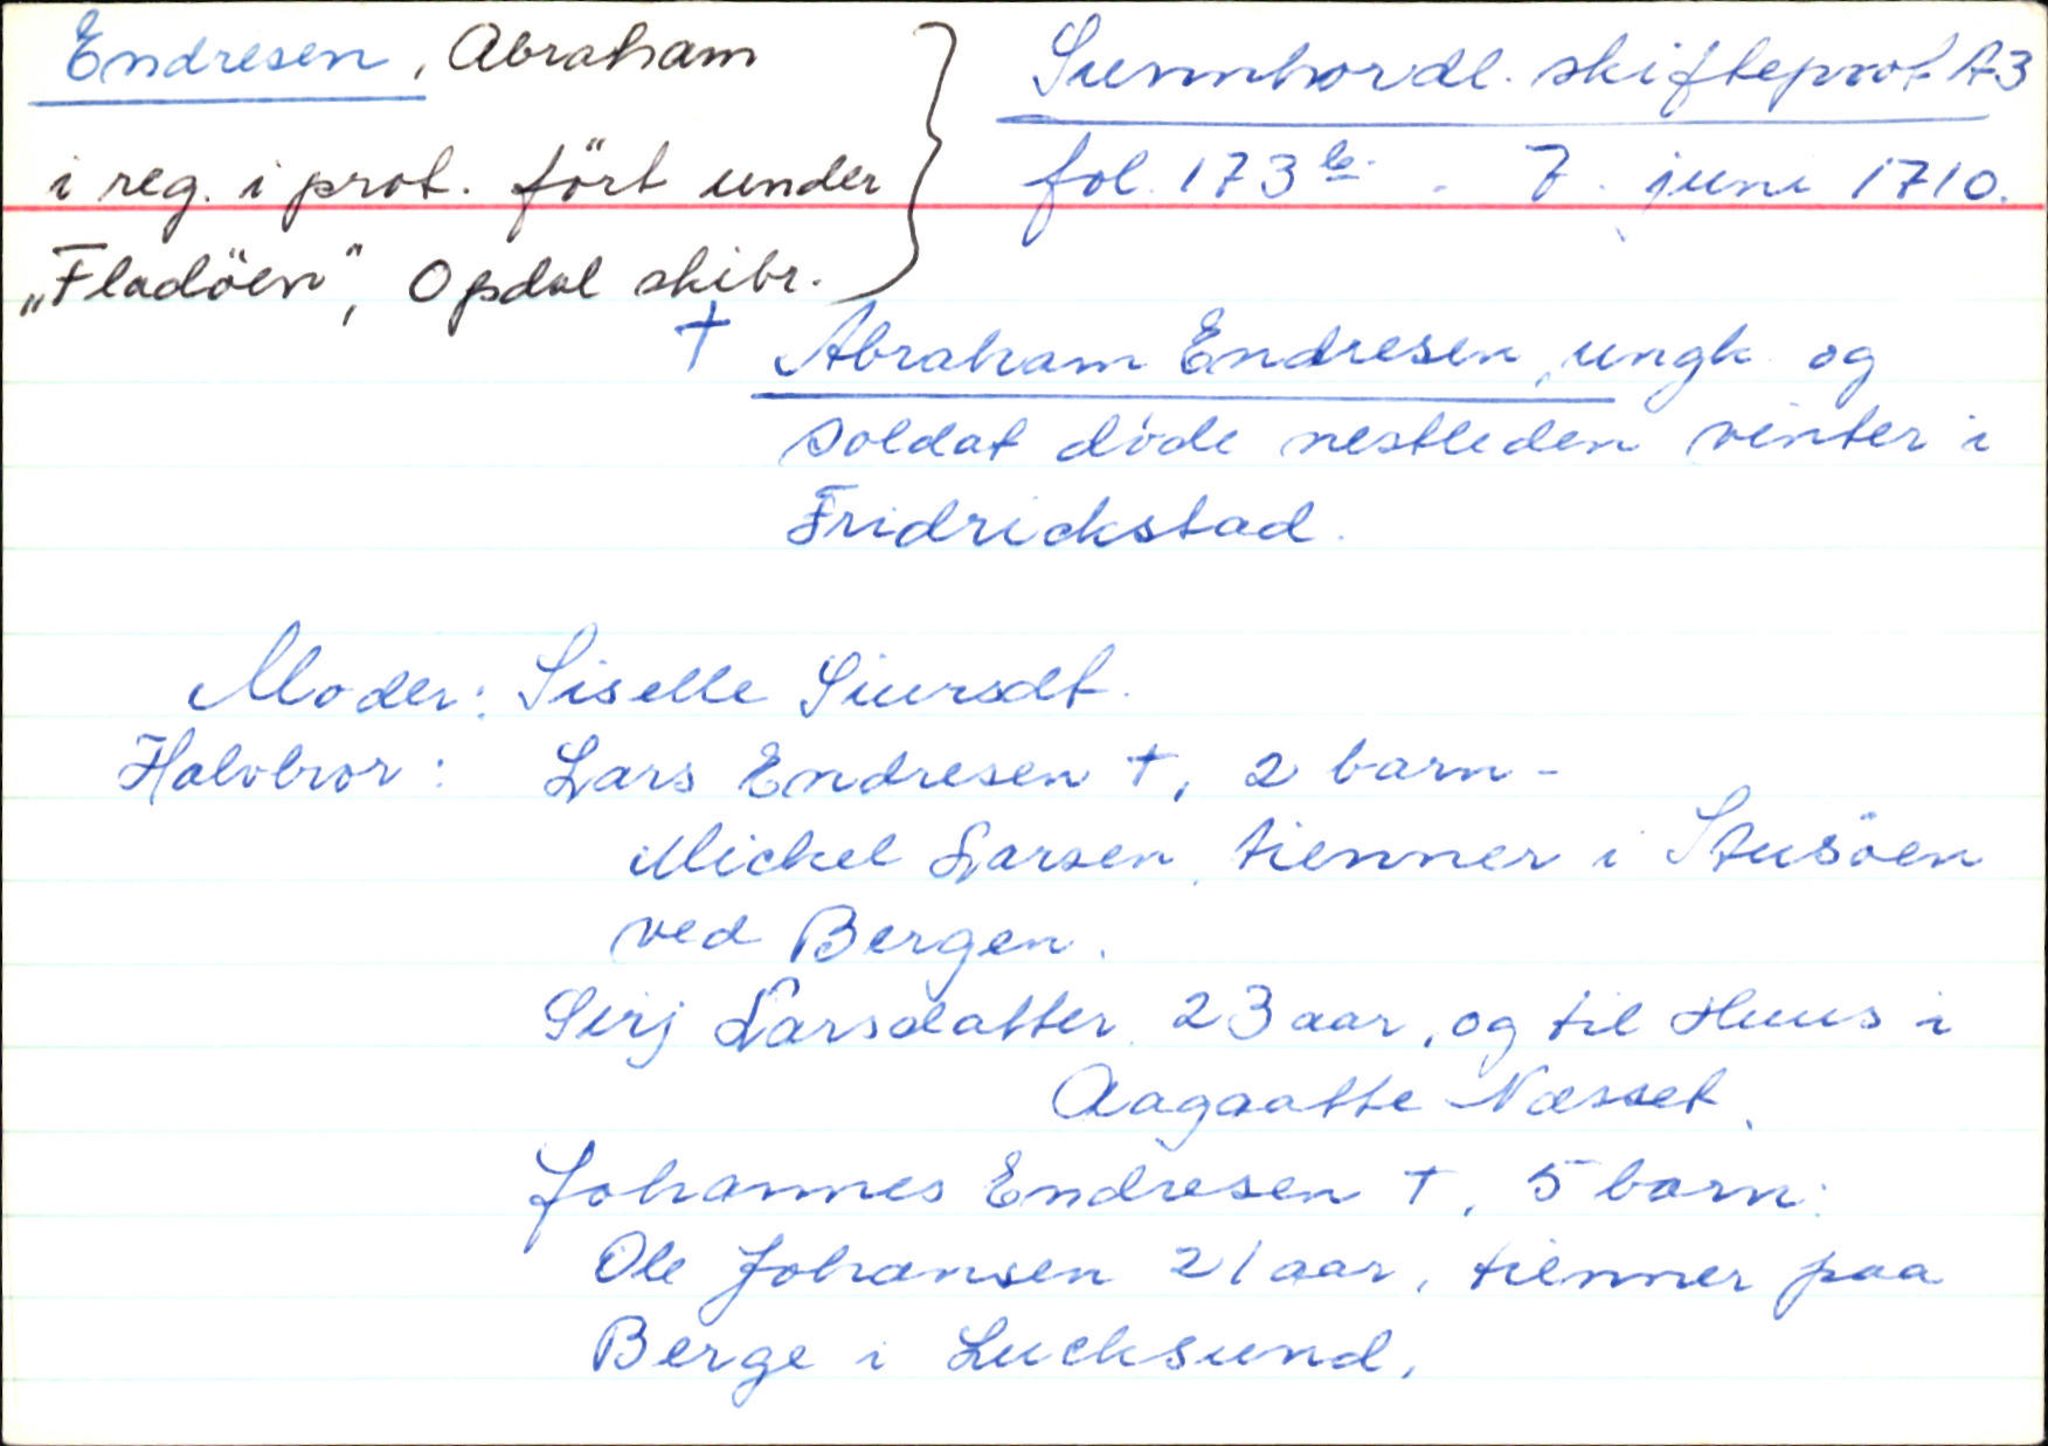 Endresen, Abraham
i reg. i prot. fört under
„Fladöen", Opdal skibr.
Sunnhordl. skifteprot A3
fol. 173 b. 7. juni 1710.
† Abraham Endresen, ungk. og
soldat döde nestleden vinter i
Fridrickstad.
Moder: Siselle Siursdt.
Halvbror: Lars Endresen †, 2 barn -
Mickel Larsen, tienner i Stusöen
ved Bergen.
Sirj Larsdatter 23 aar, og til Huus i
Aagaatte Næsset.
Johannes Endresen †, 5 barn:
Ole Johansen 21 aar, tienner paa
Berge i Lucksund.